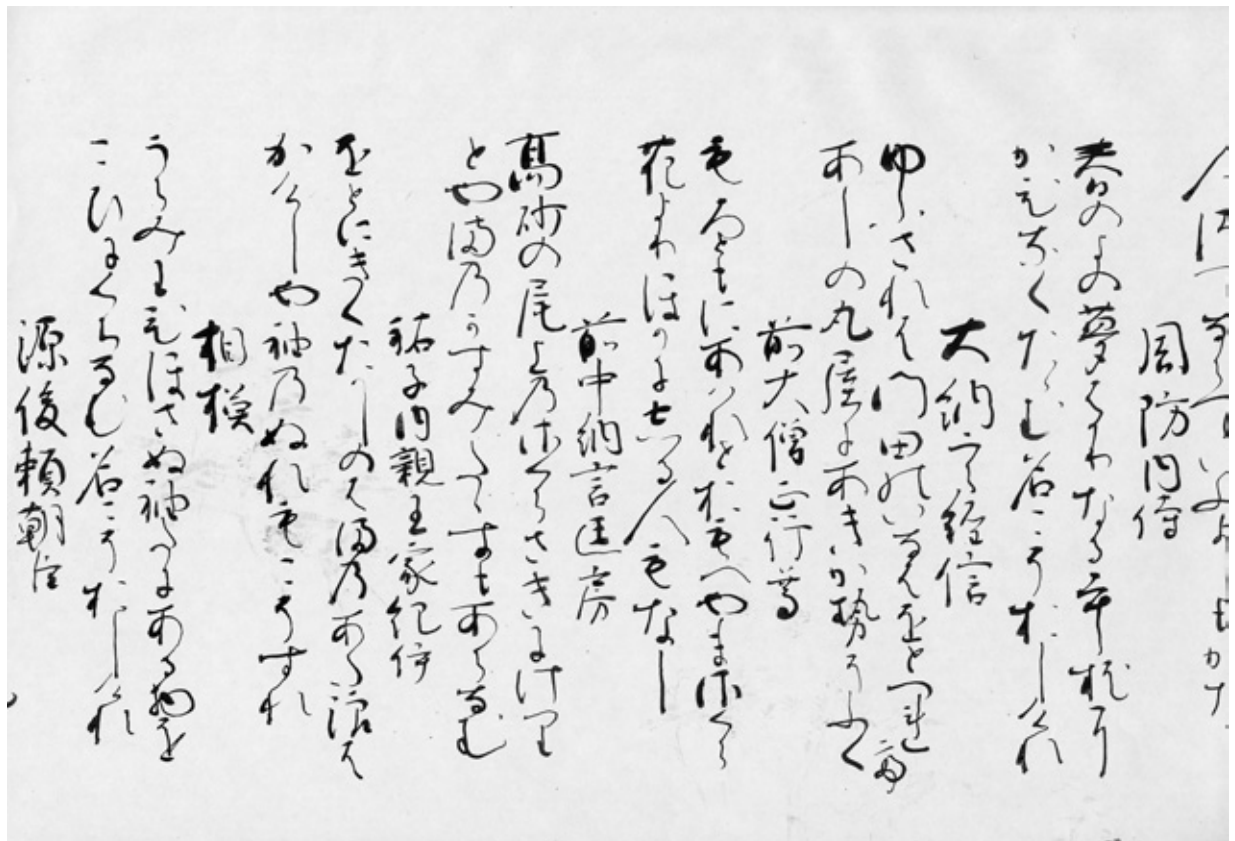 周防内侍
春のよの夢はかりなる手枕に
かひなくたゝむ名こそおしけれ
大納言経信
ゆふされは門田のいなはをとつれて
あしの丸屋にあきか勢そふく
前大僧正行尊
もろともにあはれとおもへやまさくら
花よりほかにしる人もなし
前中納言匡房
高砂の尾上のさくらさきにけり
とやまのかすみたゝすもあらなむ
祐子内親王家紀伊
をとにきくたかしのはまのあた浪は
かけしや袖のぬれもこそすれ
相模
うらみわひほさぬ袖たにある物を
こひにくちなむ名こそおしけれ
源俊頼朝臣